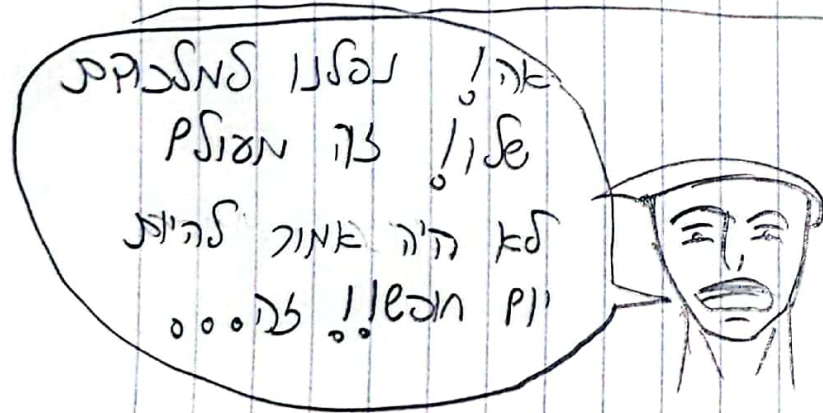 אה! נפלנו למלכודת
שלו! זה מעולם
לא היה אמור להיות
יום חופש!! זה...